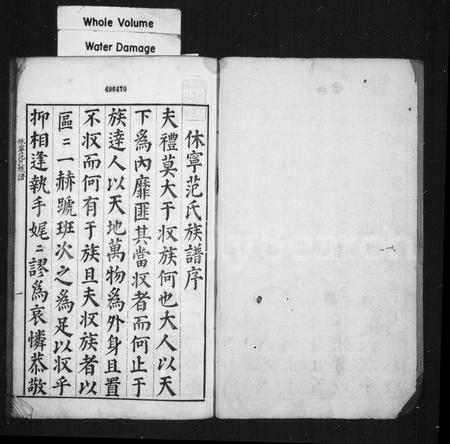 Whole Volume
Water Damage
496470
休寧范氏族譜序
夫禮莫大于収族何也大人以天
下為內靡匪其當収者而何止于
族達人以天地萬物為外身且置
不収而何有于族且夫収族者以
區〻一赫蹏班次之為足以収乎
抑相逢執手娓〻謬為哀憐恭敬
休寧范氏族譜
一